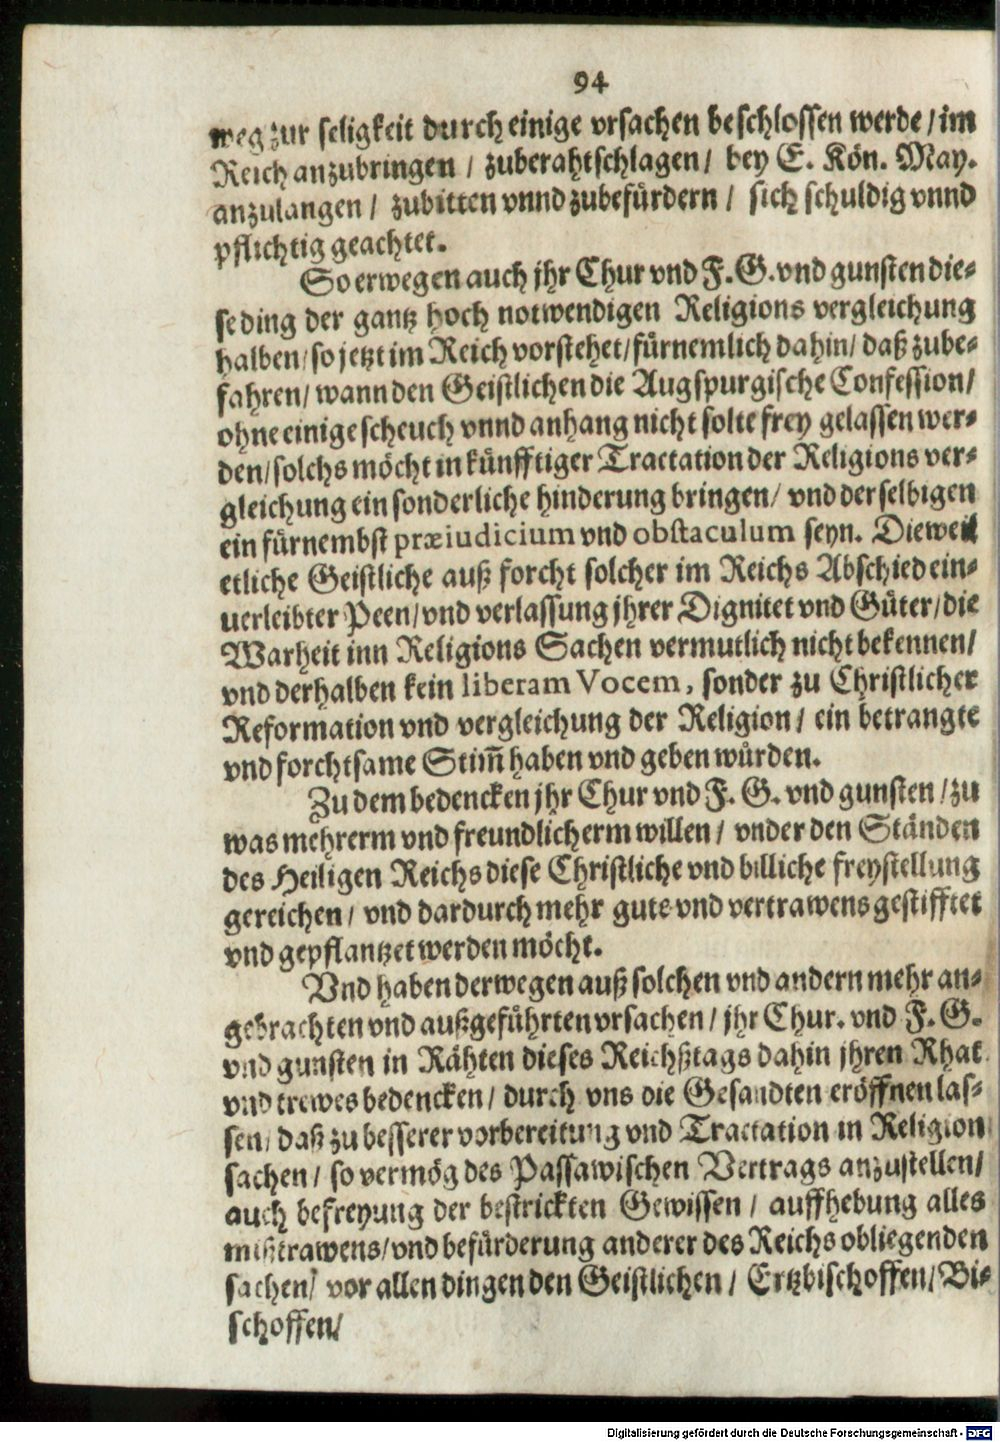 94
weg zur seligkeit durch einige vrsachen beschlossen werde / im
Reich anzubringen / zuberahtschlagen / bey E. Kön. May.
anzulangen / zubitten vnnd zubefürdern / sich schuldig vnnd
pflichtig geachtet.
So erwegen auch jhr Chur vnd F. G. vnd gunsten die-
se ding der gantz hoch notwendigen Religions vergleichung
halben / so jetzt im Reich vorstehet / fürnemlich dahin / daß zube-
fahren / wann den Geistlichen die Augspurgische Confession /
ohne einige scheuch vnnd anhang nicht solte frey gelassen wer-
den / solchs möcht in künfftiger Tractation der Religions ver-
gleichung ein sonderliche hinderung bringen / vnd derselbigen
ein fürnembst præiudicium vnd obstaculum seyn. Dieweil
etliche Geistliche auß forcht solcher im Reichs Abschied ein-
uerleibter Peen / vnd verlassung jhrer Dignitet vnd Güter / die
Warheit inn Religions Sachen vermutlich nicht bekennen /
vnd derhalben kein liberam Vocem, sonder zu Christlicher
Reformation vnd vergleichung der Religion / ein betrangte
vnd forchtsame Stim̃ haben vnd geben würden.
Zu dem bedencken jhr Chur vnd F. G. vnd gunsten / zu
was mehrerm vnd freundlicherm willen / vnder den Ständen
des Heiligen Reichs diese Christliche vnd billiche freystellung
gereichen / vnd dardurch mehr guts vnd vertrawens gestifftet
vnd gepflantzet werden möcht.
Vnd haben derwegen auß solchen vnd andern mehr an-
gebrachten vnd außgeführten vrsachen / jhr Chur. vnd F. G.
vnd gunsten in Rähten dieses Reichßtags dahin jhren Rhat
vnd trewes bedencken / durch vns die Gesandten eröffnen las-
sen / daß zu besserer vorbereitung vnd Tractation in Religion
sachen / so vermög des Passawischen Vertrags anzustellen /
auch befreyung der bestrickten Gewissen / auffhebung alles
mißtrawens / vnd befürderung anderer des Reichs obliegenden
sachen / vor allen dingen den Geistlichen / Ertzbischoffen / Bi-
schoffen /
Digitalisierung gefördert durch die Deutsche Forschungsgemeinschaft - DFG